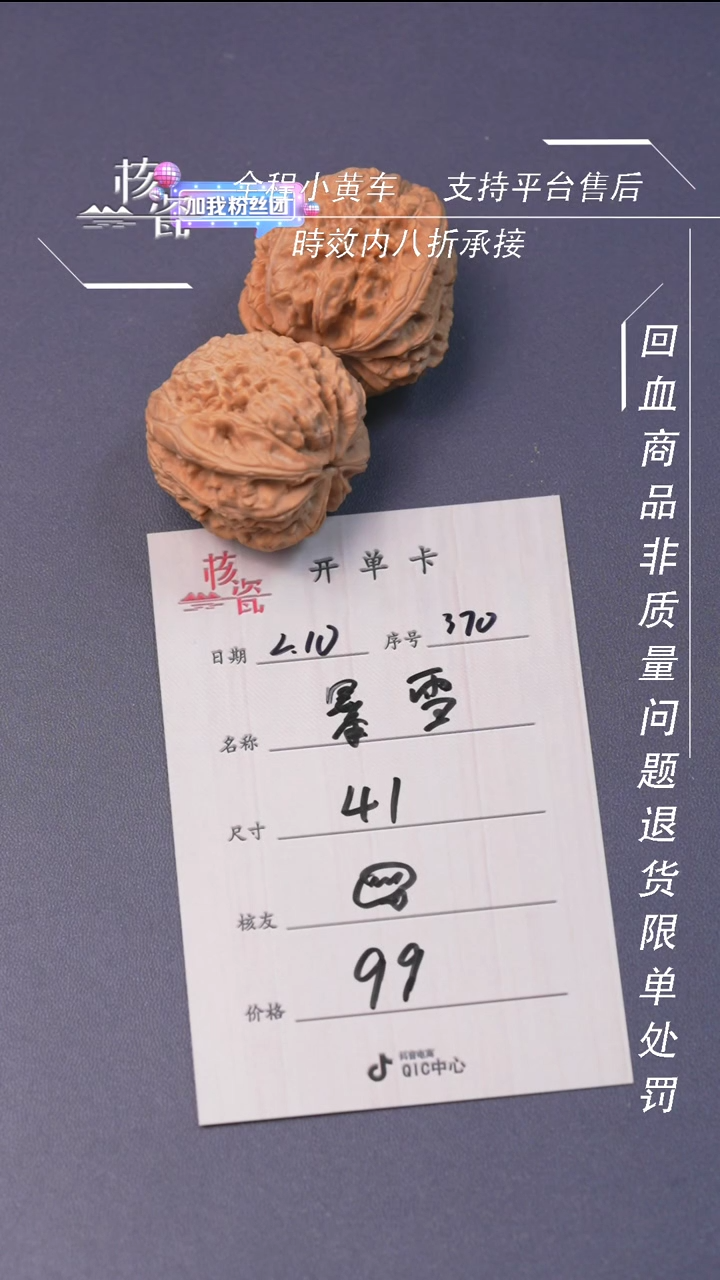 核瓷
加我粉丝团
全程小黄车 支持平台售后
時效内八折承接
回血商品非质量问题退货限单处罚
核瓷
开单卡
日期 2.10 序号 370
名称 暴雪
尺寸 41
核友
价格 99
抖音电商
QIC中心